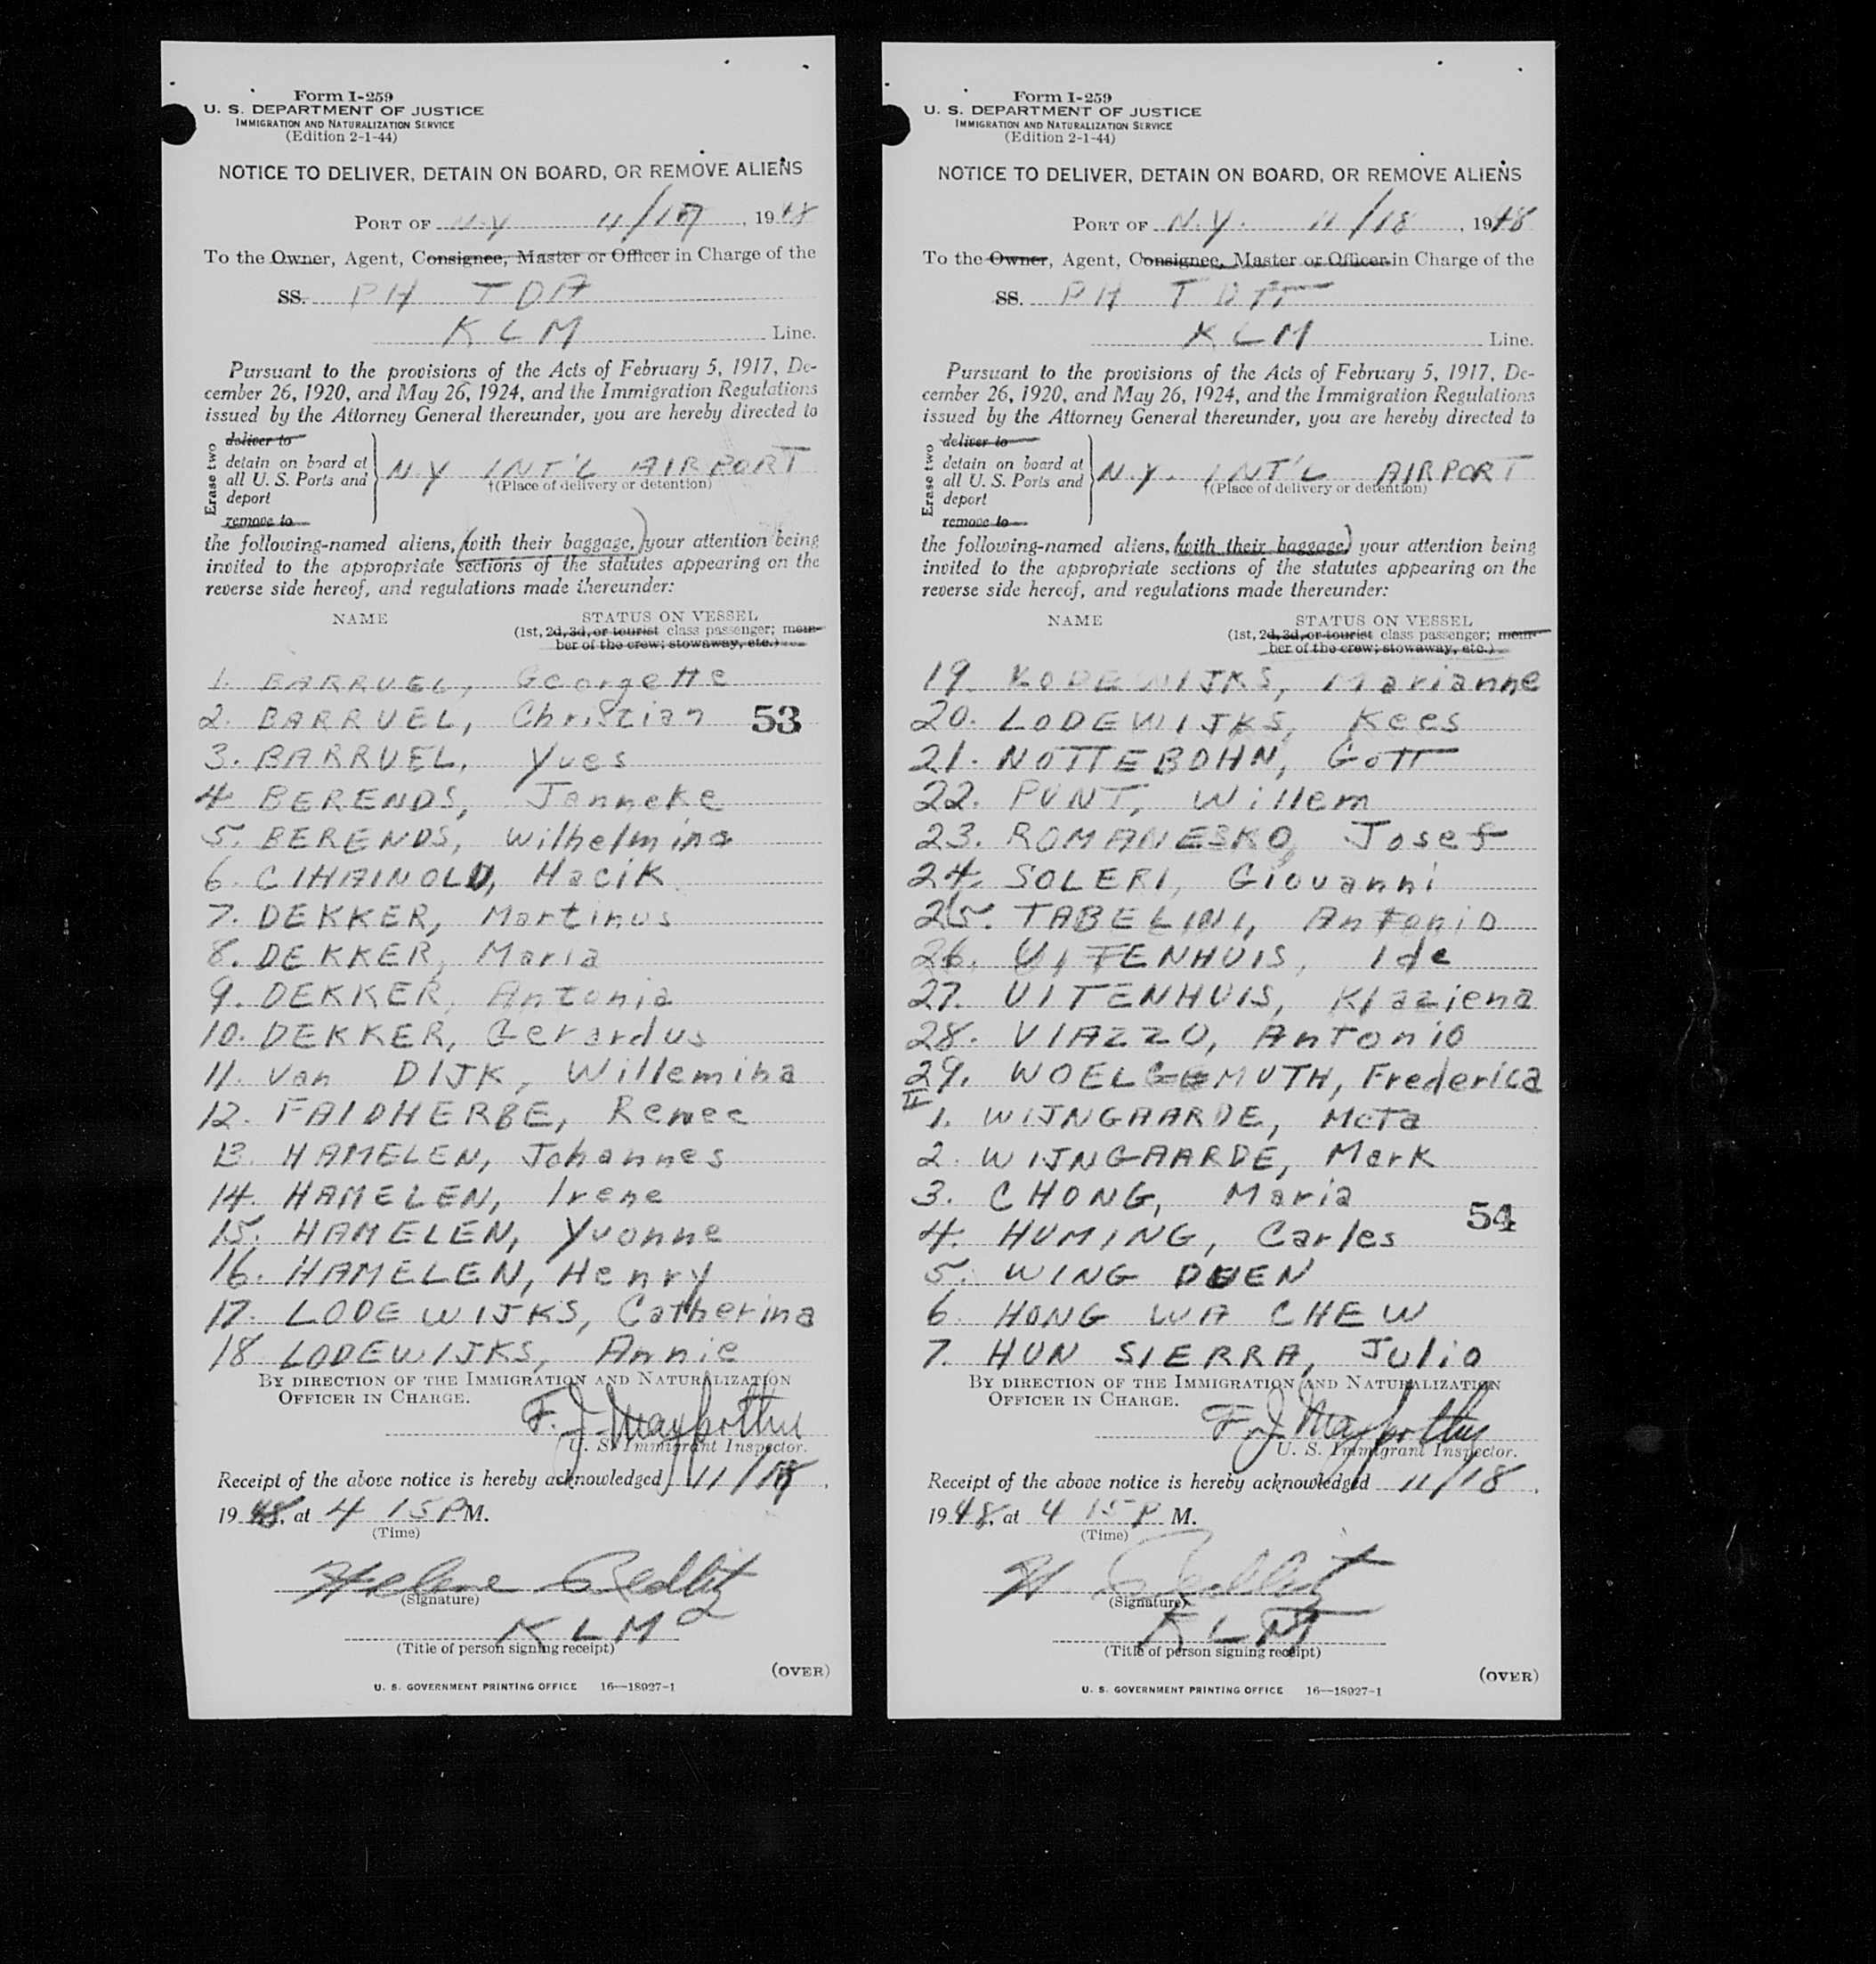 Form I-259
U. S. DEPARTMENT OF JUSTICE
IMMIGRATION AND NATURALIZATION SERVICE
(Edition 2-1-44)
NOTICE TO DELIVER, DETAIN ON BOARD, OR REMOVE ALIENS
PORT OF N.Y 11/18, 1948
To the Owner, Agent, Consignee, Master or Officer in Charge of the
SS. PH TDA
KLM Line.
Pursuant to the provisions of the Acts of February 5, 1917, De-
cember 26, 1920, and May 26, 1924, and the Immigration Regulations
issued by the Attorney General thereunder, you are hereby directed to
Erase two
deliver to
detain on board at
all U. S. Ports and
deport
remove to
N.Y INT'L AIRPORT
†(Place of delivery or detention)
the following-named aliens, (with their baggage,) your attention being
invited to the appropriate sections of the statutes appearing on the
reverse side hereof, and regulations made thereunder:
NAME STATUS ON VESSEL
(1st, 2d, 3d, or tourist class passenger; mem-
ber of the crew; stowaway, etc.)
1. BARRUEL, Georgette
2. BARRUEL, Christian 53
3. BARRUEL, Yves
4 BERENDS, Janneke
5. BERENDS, Wilhelmina
6. CIHAINOLD, Hacik
7. DEKKER, Martinus
8. DEKKER, Maria
9. DEKKER, Antonia
10. DEKKER, Gerardus
11. Van DIJK, Willemina
12. FAIDHERBE, Renee
13. HAMELEN, Johannes
14. HAMELEN, Irene
15. HAMELEN, Yvonne
16. HAMELEN, Henry
17. LODEWIJKS, Catherina
18 LODEWIJKS, Annie
BY DIRECTION OF THE IMMIGRATION AND NATURALIZATION
OFFICER IN CHARGE.
F. J.
U. S. Immigrant Inspector.
Receipt of the above notice is hereby acknowledged 11/18,
1948, at 4 15 P M.
(Time)
Helene
(Signature)
KLM
(Title of person signing receipt)
(OVER)
U. S. GOVERNMENT PRINTING OFFICE 16—18027-1
Form I-259
U. S. DEPARTMENT OF JUSTICE
IMMIGRATION AND NATURALIZATION SERVICE
(Edition 2-1-44)
NOTICE TO DELIVER, DETAIN ON BOARD, OR REMOVE ALIENS
PORT OF N.Y. 11/18, 1948
To the Owner, Agent, Consignee, Master or Officer in Charge of the
SS. PH TDA
KLM Line.
Pursuant to the provisions of the Acts of February 5, 1917, De-
cember 26, 1920, and May 26, 1924, and the Immigration Regulations
issued by the Attorney General thereunder, you are hereby directed to
Erase two
deliver to
detain on board at
all U. S. Ports and
deport
remove to
N.Y. INT'L AIRPORT
†(Place of delivery or detention)
the following-named aliens, (with their baggage,) your attention being
invited to the appropriate sections of the statutes appearing on the
reverse side hereof, and regulations made thereunder:
NAME STATUS ON VESSEL
(1st, 2d, 3d, or tourist class passenger; mem-
ber of the crew; stowaway, etc.)
19. LODEWIJKS, Marianne
20. LODEWIJKS, Kees
21. NOTTEBOHN, Gott
22. PUNT, Willem
23. ROMANESKO, Josef
24. SOLERI, Giovanni
25. TABELINI, Antonio
26. UITENHUIS, Ide
27. UITENHUIS, Klaziena
28. VIAZZO, Antonio
29. WOELGEMUTH, Frederica
1. WIJNGAARDE, Meta
2. WIJNGAARDE, Mark
3. CHONG, Maria
4. HUMING, Carles 54
5. WING DUEN
6. HONG WA CHEW
7. HUN SIERRA, Julio
BY DIRECTION OF THE IMMIGRATION AND NATURALIZATION
OFFICER IN CHARGE.
F J
U. S. Immigrant Inspector.
Receipt of the above notice is hereby acknowledged 11/18,
1948, at 4 15 P M.
(Time)
H
(Signature)
KLM
(Title of person signing receipt)
(OVER)
U. S. GOVERNMENT PRINTING OFFICE 16—18027-1